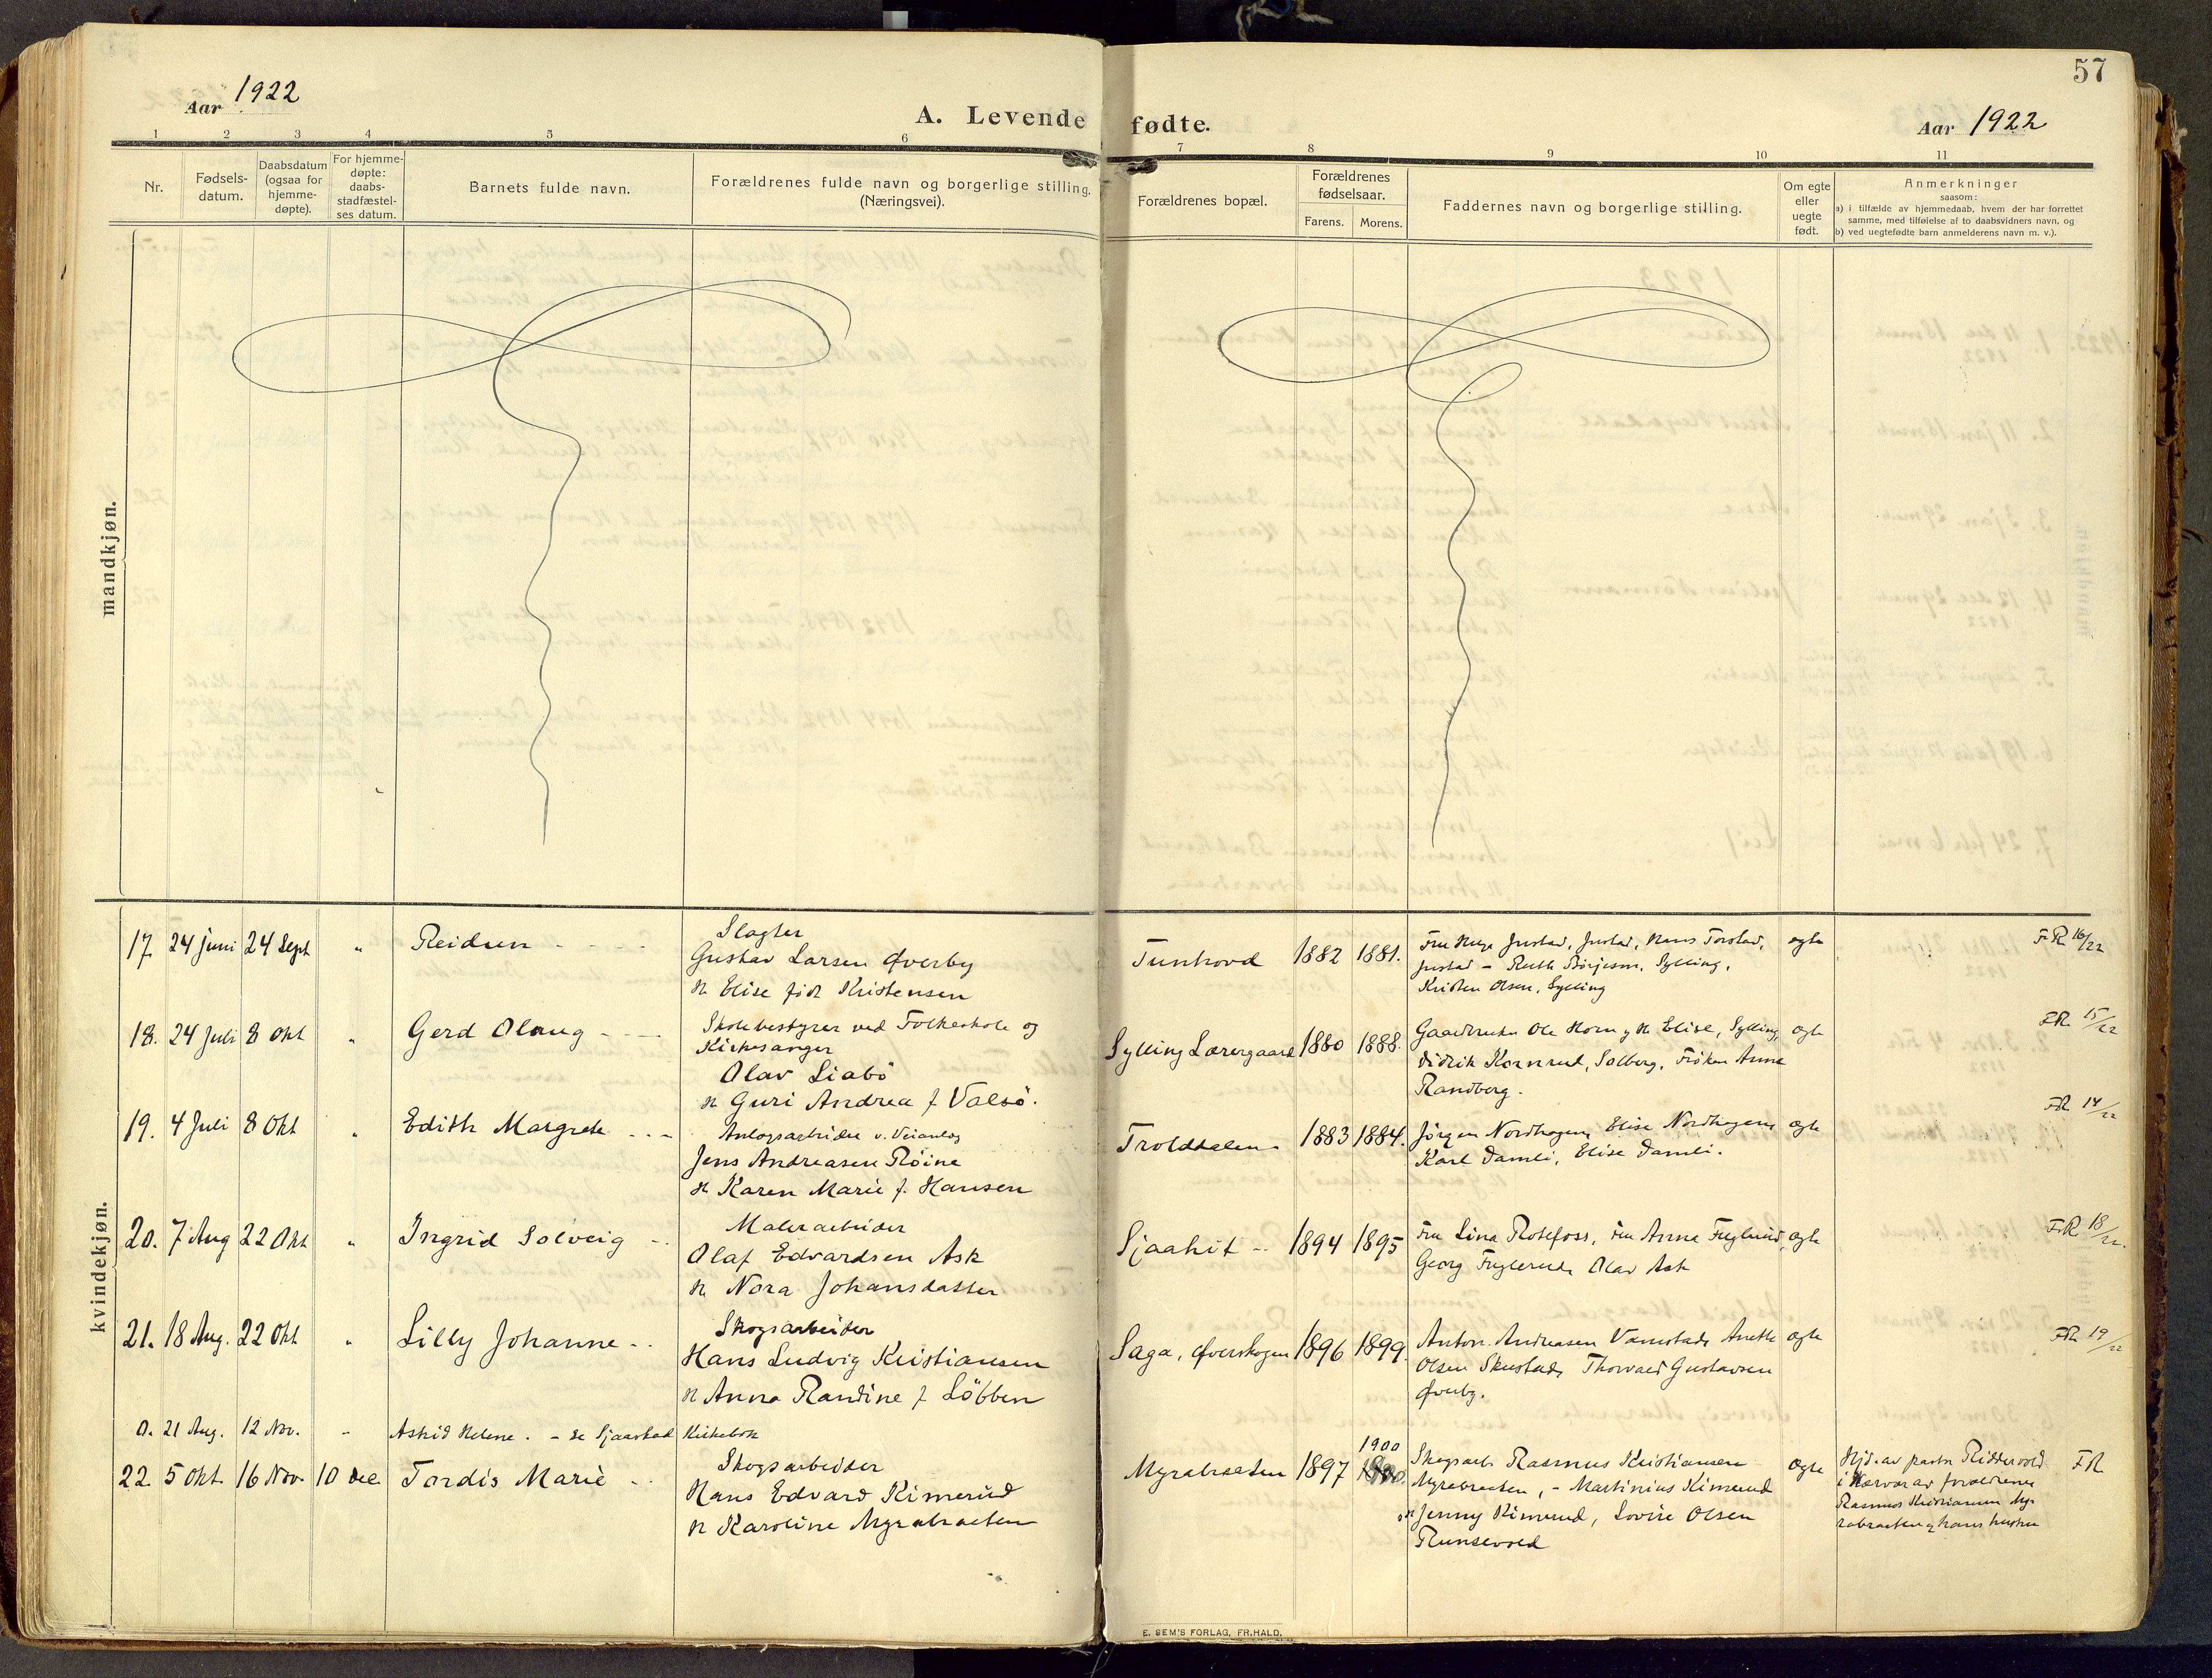 57
Aar 1922
A. Levende fødte.
Aar 1922
1 2 3 4 5 6 7 8 9 10 11
Nr.
Fødsels-
datum.
Daabsdatum
(ogsaa for
hjemme-
døpte).
For hjemme-
døpte:
daabs-
stadfæstel-
ses datum.
Barnets fulde navn.
Forældrenes fulde navn og borgerlige stilling.
(Næringsvei).
Forældrenes bopæl.
Forældrenes
fødselsaar.
Farens. Morens.
Faddernes navn og borgerlige stilling.
Om egte
eller
uegte
født.
Anmerkninger
saasom:
a) i tilfælde av hjemmedaab, hvem der har forrettet
samme, med tilføielse af to daabsvidners navn, og
b) ved uegtefødte barn anmelderens navn m. v.).
mandkjøn.
kvindekjøn.
17. 24 juni 24 Sept " Reidun
Slagter
Gustav Larsen Øverby
H. Elise föd Kristensen
Tunhovd 1882 1881.
Fru Justad, Justad, Hans Torstad,
Justad - Ruth Börjeson, Sylling,
Kristen Olsen, Sylling
egte
FR 16/22
18. 24 Juli 8 Okt " Gerd Olaug
Skolebestyrer ved Folkeskole og
Kirkesanger
Olav Liabö
H Guri Andrea f Valsö.
Sylling Lærergaard 1880 1888.
Gaardbruker Ole Horn y H Elise, Sylling,
Didrik Kornrud, Solberg, Fröken Anna
Randberg.
egte
FR 15/22
19. 4 Juli 8 Okt " Edith Margrete
Anlægsarbeider v. Veianlæg
Jens Andreasen Röine
H. Karen Marie f. Hansen
Troldtalen 1883 1884.
Jörgen Nordhagen, Elise Nordhagen,
Karl Damli, Elise Damli.
egte
FR 14/22
20. 7 Aug 22 Okt " Ingrid Solveig
Malerarbeider
Olaf Edvardsen Ask
H. Nora Johansdatter
Sjaahit 1894 1895
Fru Lina Rosefoss, Fru Anna Fuglerud,
Georg Fuglerud, Olav Ask
egte
FR 18/22.
21. 18 Aug. 22 Okt " Lilly Johanne
Skogsarbeider
Hans Ludvig Kristiansen
H Anna Randine f Löbben
Saga, Øverskogen 1896 1899.
Anton Andreasen Vamstad, Anette
Olsen Skustad, Thorvald Gustavsen
Øverby.
egte
FR 19/22
0. 21 Aug. 12 Nov. " Astrid Helene. - se Sjaastad Kirkebok
22. 5 Okt. 16 Nov. 10 Dec Tordis Marie
Skogsarbeider
Hans Edvard Kimerud
H Karoline Myrabraaten
Myrabraaten 1897 1900
Skogsarb. Rasmus Kristiansen
Myrabraaten, - Martinius Kimerud
o H Jenny Kimerud, Lovise Olsen
Runsevold
egte
Hjd. av pastor Riddervold
i nærvær av forældrene
Rasmus Kristiansen Myr
rabraaten og hans hustru
FR
E. SEM'S FORLAG, FR.HALD.